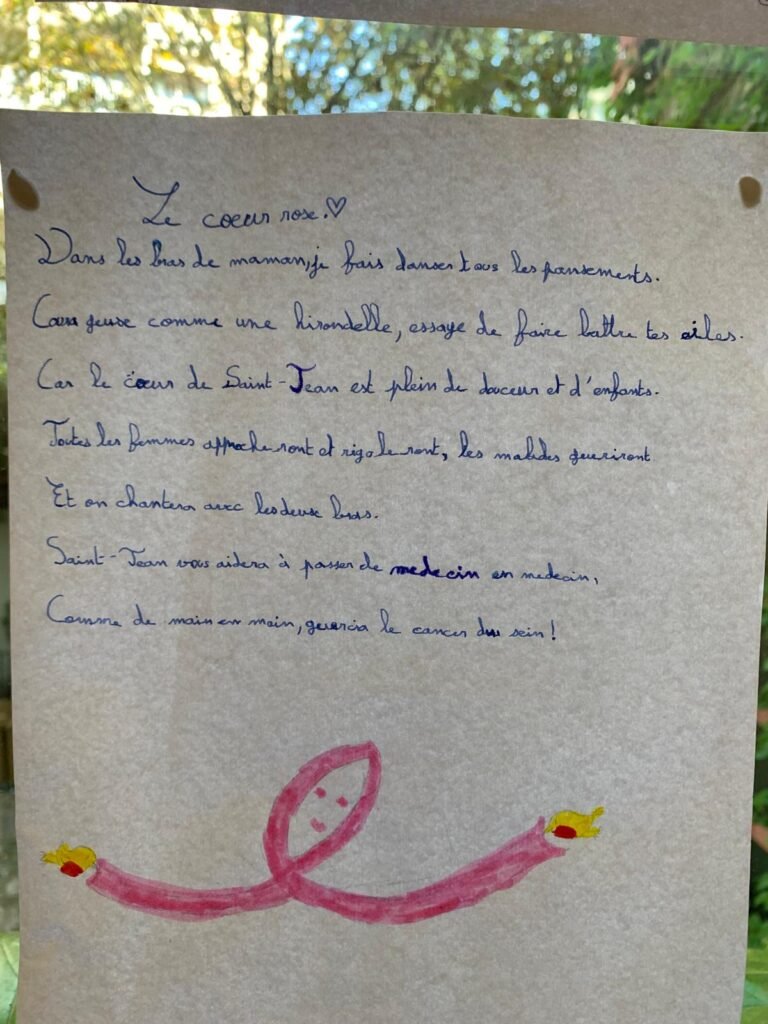 Le coeur rose.♡
Dans les bras de maman, je fais danser tous les pansements.
Courageuse comme une hirondelle, essaye de faire battre tes ailes.
Car le cœur de Saint-Jean est plein de douceur et d'enfants.
Toutes les femmes approcheront et rigoleront, les malades gueriront
Et on chantera avec les deux bras.
Saint-Jean vous aidera à passer de medecin en medecin,
Comme de main en main, guerira le cancer du sein!